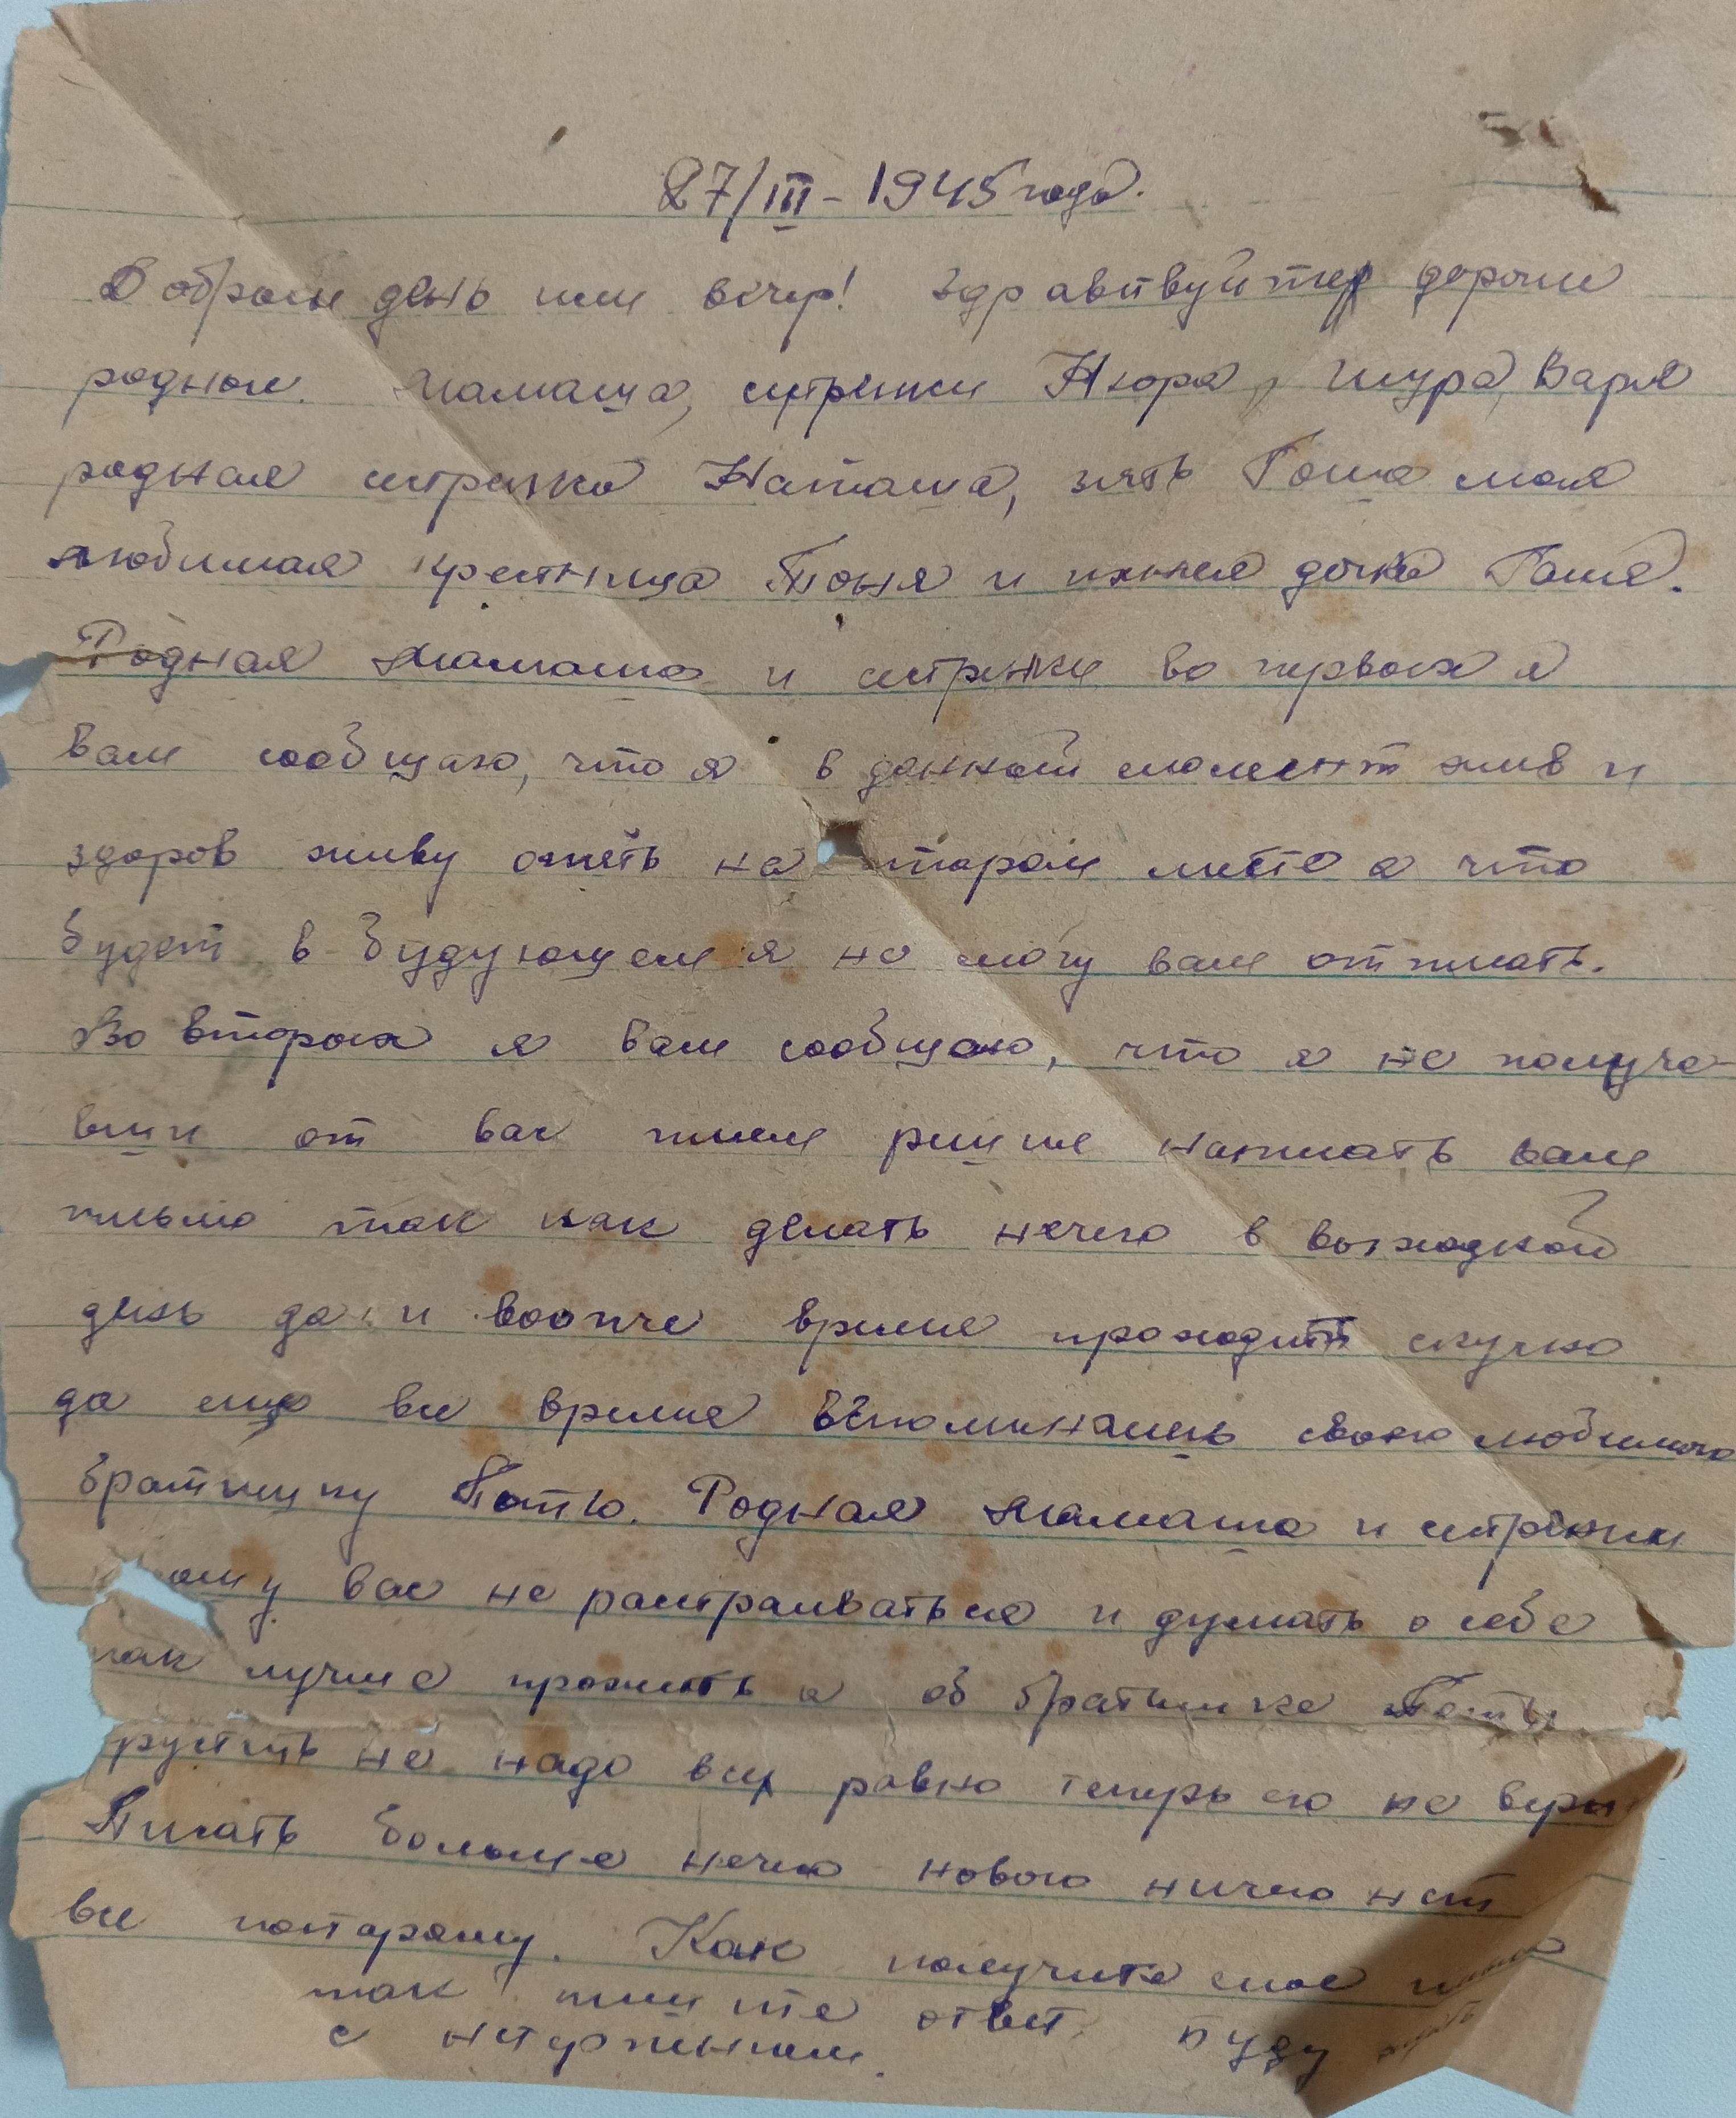 27/III - 1945 года.
Добрый день или вечер! Здравствуйте дорогие
родные. Мамаша, сестренки Нюра, Шура, Варя
родная сестренка Наташа, зять Гоша моя
любимая крестница Тоня и ихняя дочка Галя.
Родная мамаша и сестренки во первых я
вам сообщаю, что я в данный момент жив и
здоров живу опеть на старом месте а что
будет в будующем я не могу вам отписать.
Во вторых я вам сообщаю, что я не получа-
вши от вас писем решил написать вам
письмо так как делать нечего в выходной
день да и воопче время проходит скучно
да еще все время вспоминаешь своего любимого
братишку Петю. Родная мамаша и сестренки
вас не растраиваться и думать о себе
как лучше прожить а об братишке Пети
рустить не надо все равно теперь его не верн
Писать больше нечего нового ничего нет
все постарому. Как получите мое письмо
так пишите ответ. Буду ждать
с нетерпением.